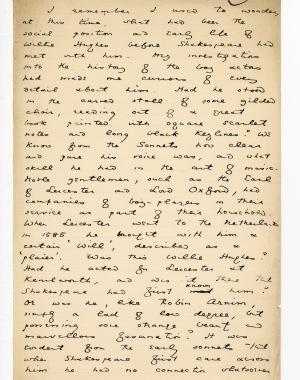 I remember I used to wonder,
at this time, what had been the
social position and early life of
Willie Hughes before Shakespeare had
met with him. My investigations
into the history of the boy actors
had made me curious of every
detail about him. Had he stood
in the carved stall of some gilded
choir, reading out of a great
book printed with square scarlet
notes and long black key lines? We
know from the Sonnets how clear
and pure his voice was, and what
skill he had in the art of music.
Noble gentlemen, such as the Earl
of Leicester and Lord Oxford, had
companies of boy-players in their
service as part of their household.
When Leicester went to the Netherlands
in 1585 he brought with him a
certain 'Will', described as a
'plaier'. Was this Willie Hughes?
Had he acted for Leicester at
Kenilworth, and was it there that
Shakespeare had first known him?
Or was he, like Robin Armin,
simply a lad of low degree, but
possessing some strange beauty and
marvellous fascination? It was
evident from the early sonnets that
when Shakespeare first came across
him he had no connection whatsoever